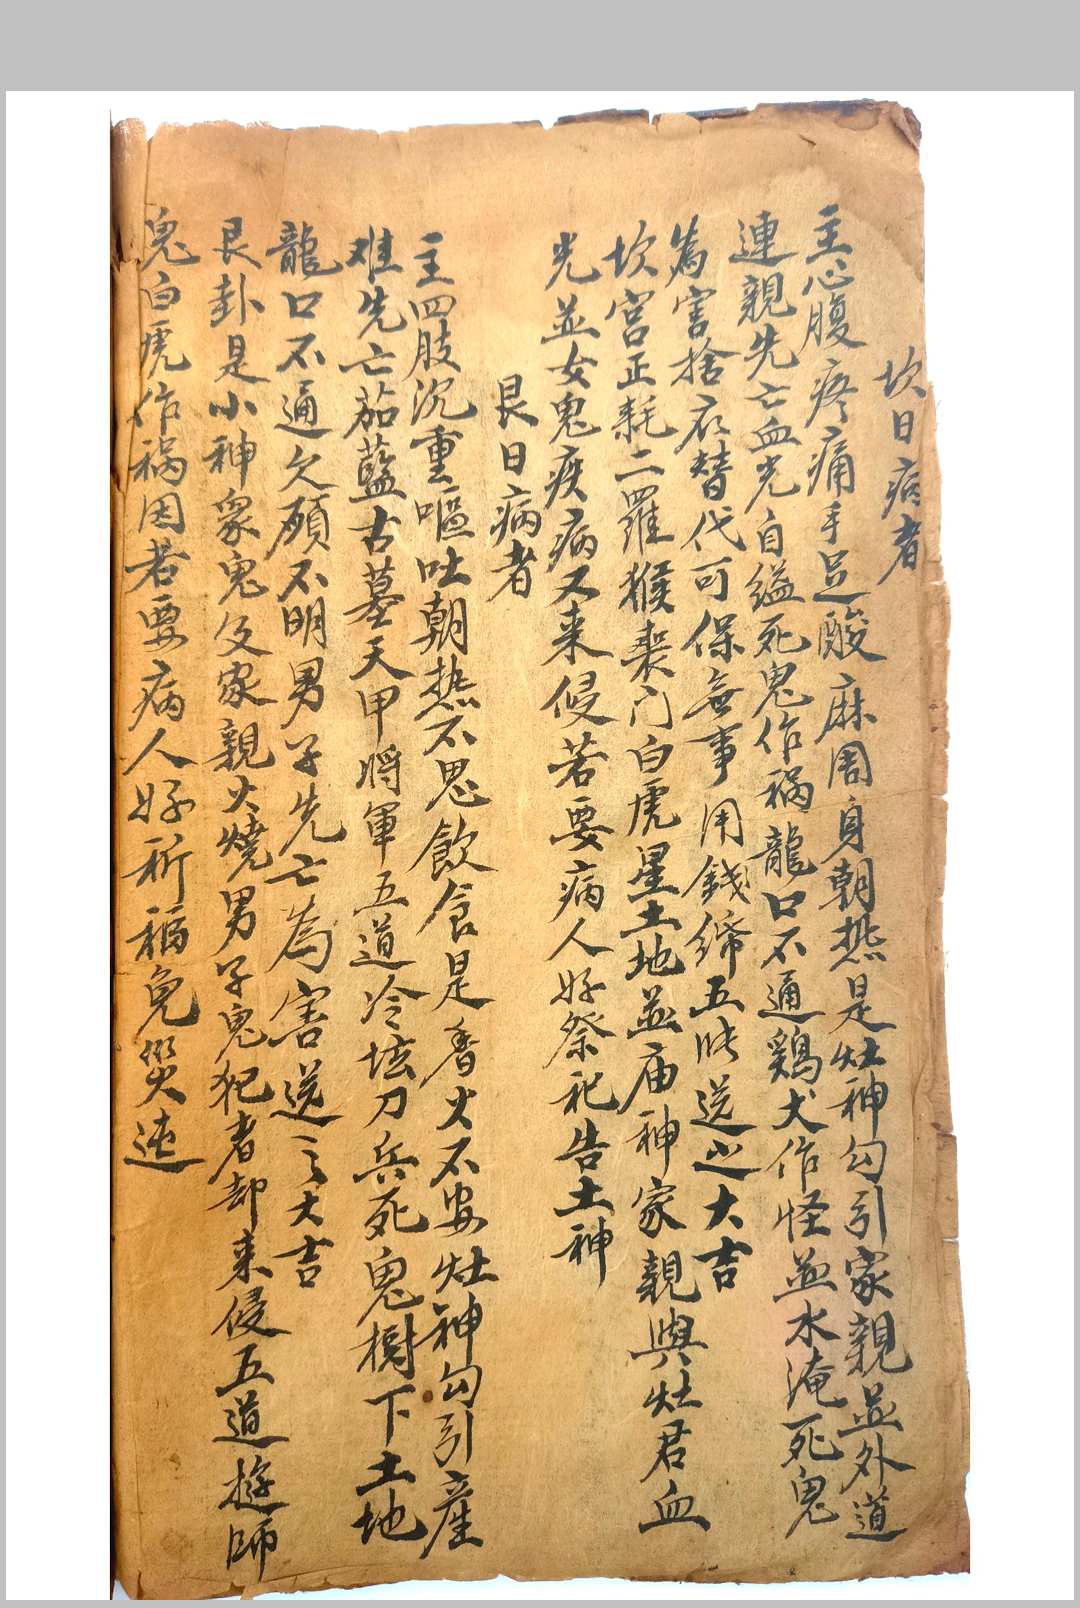 坎日病者
主心腹疼痛手足酸麻周身朝热是灶神勾引家親並外道
連親先亡血光自縊死鬼作禍龍口不通鷄犬作怪並水淹死鬼
為害捨衣替代可保無事用錢締五 送之大吉
坎宮正耗二羅猴喪门白虎星土地並庙神家親與灶君血
光並女鬼疾病又来侵若要病人好祭祀告土神
艮日病者
主四肢沉重嘔吐朝热不思飲食是香火不安灶神勾引産
难先亡茄藍古墓天甲将軍五道冷坛刀兵死鬼樹下土地
龍口不通欠願不明男子先亡為害送之大吉
艮卦是小神衆鬼及家親火燒男子鬼犯者却来侵五道遊師
鬼白虎作祸因若要病人好祈福免災迍